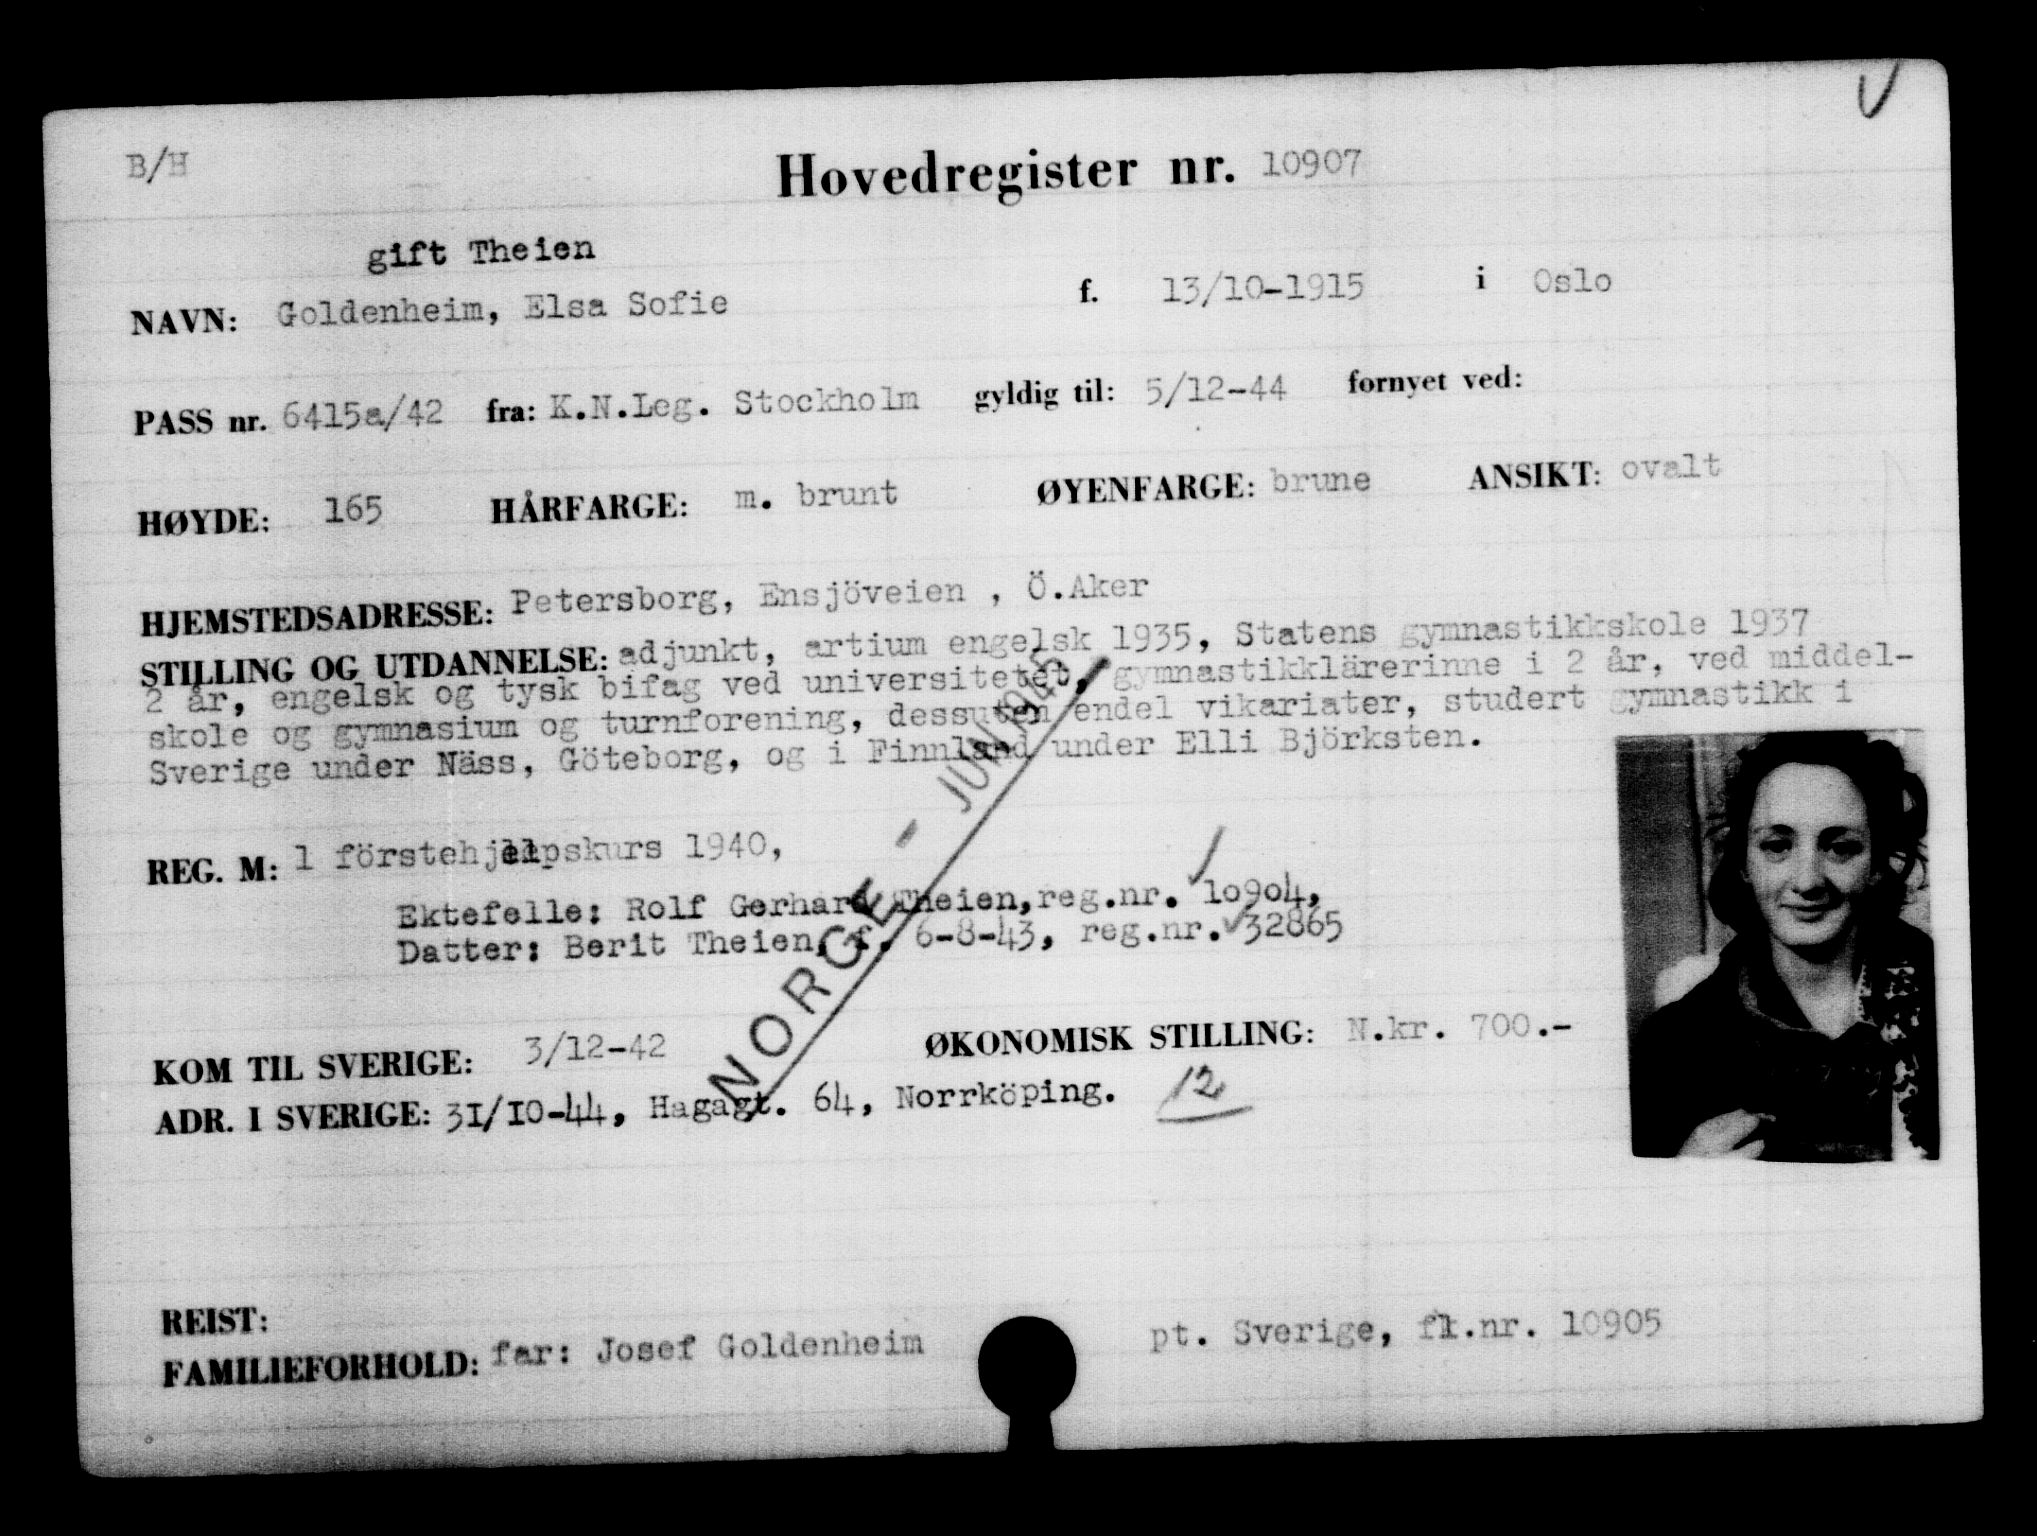 B/H
Hovedregister nr. 10907
gift Theien
NAVN: Goldenheim, Elsa Sofie f. 13/10-1915 i Oslo
PASS nr. 6415a/42 fra: K.N.Leg. Stockholm gyldig til: 5/12-44 fornyet ved:
HØYDE: 165 HÅRFARGE: m. brunt ØYENFARGE: brune ANSIKT: ovalt
HJEMSTEDSADRESSE: Petersborg, Ensjöveien , Ö.Aker
STILLING OG UTDANNELSE: adjunkt, artium engelsk 1935, Statens gymnastikkskole 1937
2 år, engelsk og tysk bifag ved universitetet, gymnastikklärerinne i 2 år, ved middel-
skole og gymnasium og turnforening, dessuten endel vikariater, studert gymnastikk i
Sverige under Näss, Göteborg, og i Finnland under Elli Björksten.
NORGE - JUN 1945
REG. M: 1 förstehjelpskurs 1940,
Ektefelle: Rolf Gerhard Theien, reg.nr. 10904,
Datter: Berit Theien, f. 6-8-43, reg.nr. 32865
KOM TIL SVERIGE: 3/12-42 ØKONOMISK STILLING: N.kr. 700.-
ADR. I SVERIGE: 31/10-44, Hagagt. 64, Norrköping. 12
REIST:
FAMILIEFORHOLD: far: Josef Goldenheim pt. Sverige, fl.nr. 10905